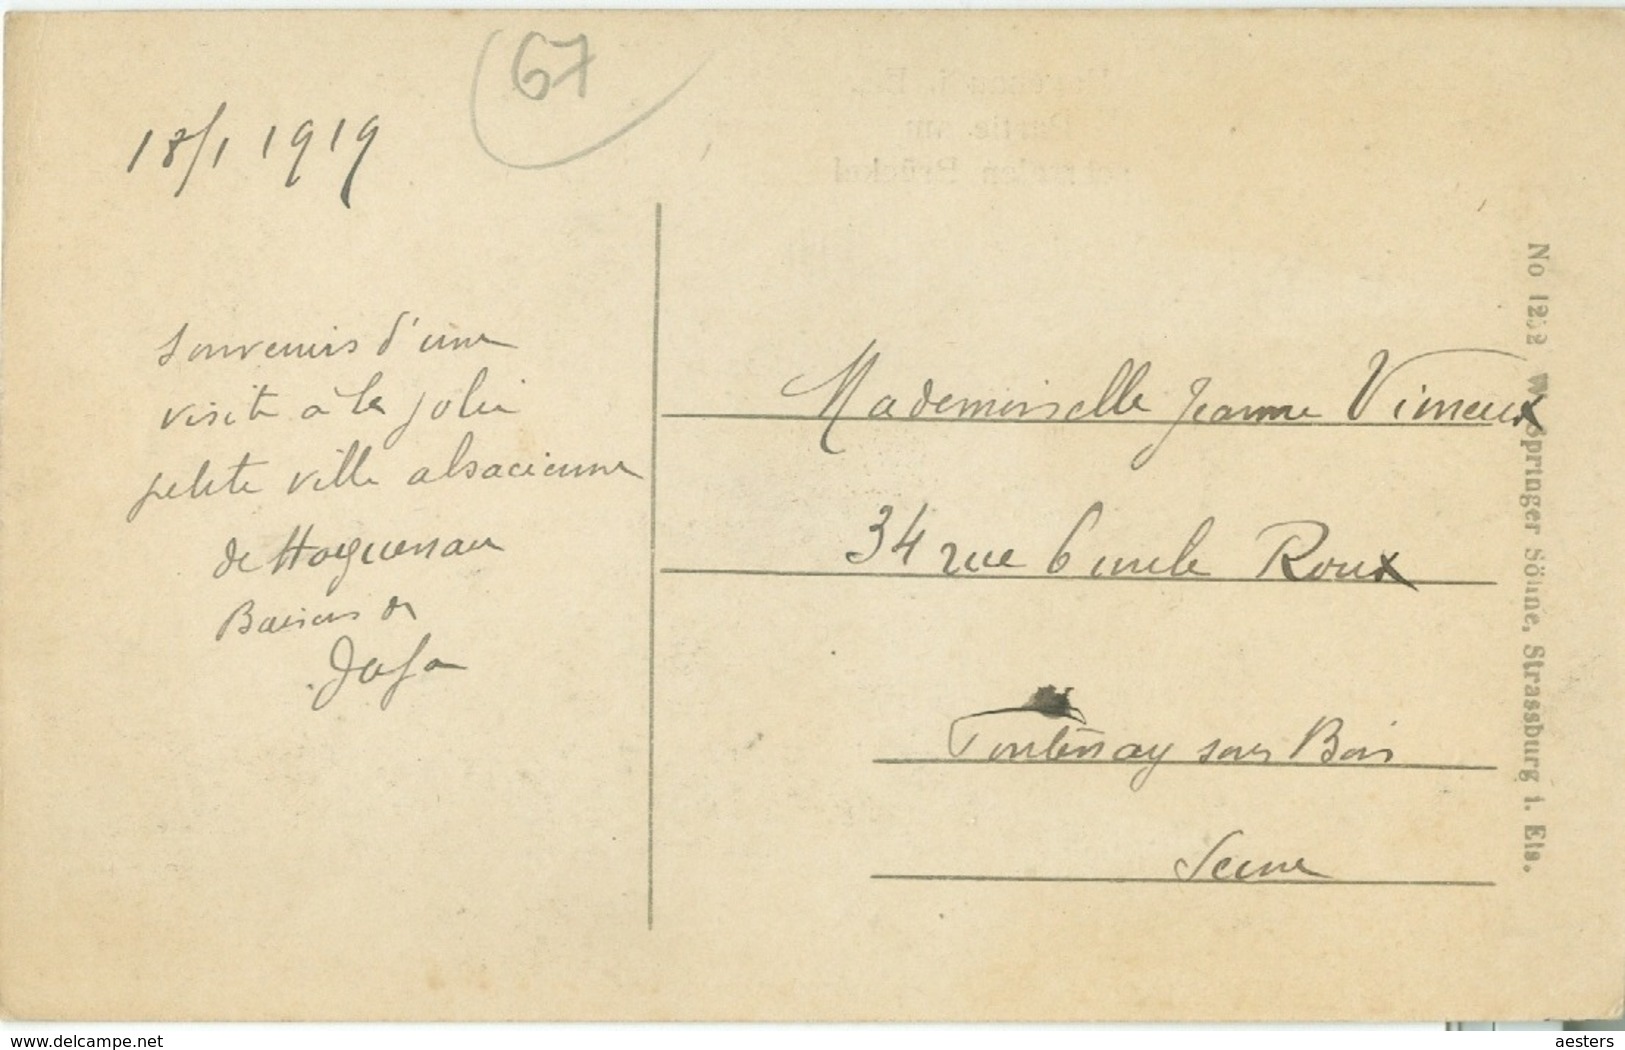 67
18/1 1919
Souvenirs d'une
visite à la jolie
petite ville alsacienne
de Haguenau
Baisers de
Mademoiselle Jeanne Vimeux
34 rue Emile Roux
Fontenay sous Bois
Seine
No Springer Söhne, Strassburg i. Els.
www.delcampe.net
aesters